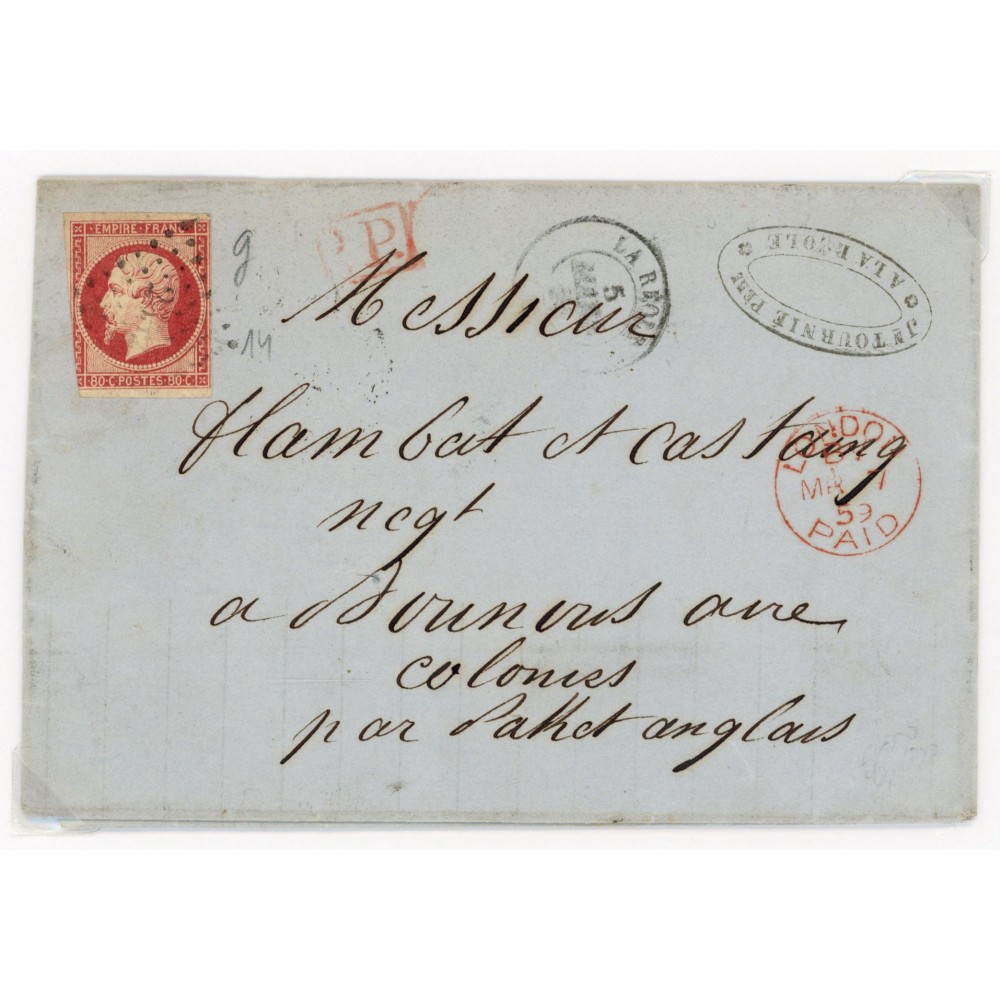 EMPIRE · FRANC
80 · C · POSTES · 80 · C
9
14
P.P.
LA REOLE
5
MARS
JN TOURNIE PERE
A LA REOLE
Messieur
flambat et castaing
negt
a Bounous aire
colonies
par Pakket anglais
LONDON
MR 7
59
PAID